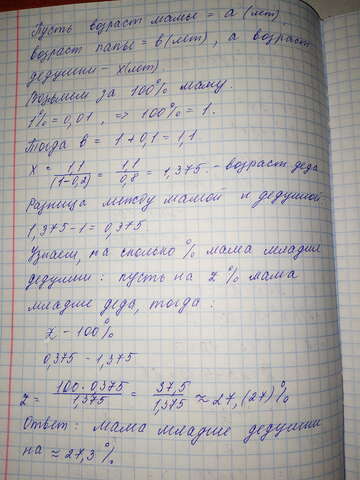 Пусть возраст мамы = a (лет)
возраст папы = в (лет), а возраст
дедушки - x (лет)
Возьмем за 100% маму.
1% = 0,01, => 100% = 1.
Тогда в = 1 + 0,1 = 1,1
x = 1,1/(1-0,2) = 1,1/0,8 = 1,375. - возраст деда
Разница между мамой и дедушкой:
1,375 - 1 = 0,375
Узнаем, на сколько % мама младше
дедушки: пусть на z % мама
младше деда, тогда:
z - 100%
0,375 - 1,375
z = 100 · 0,375/1,375 = 37,5/1,375 ≈ 27,(27)%
Ответ: мама младше дедушки
на ≈ 27,3 %